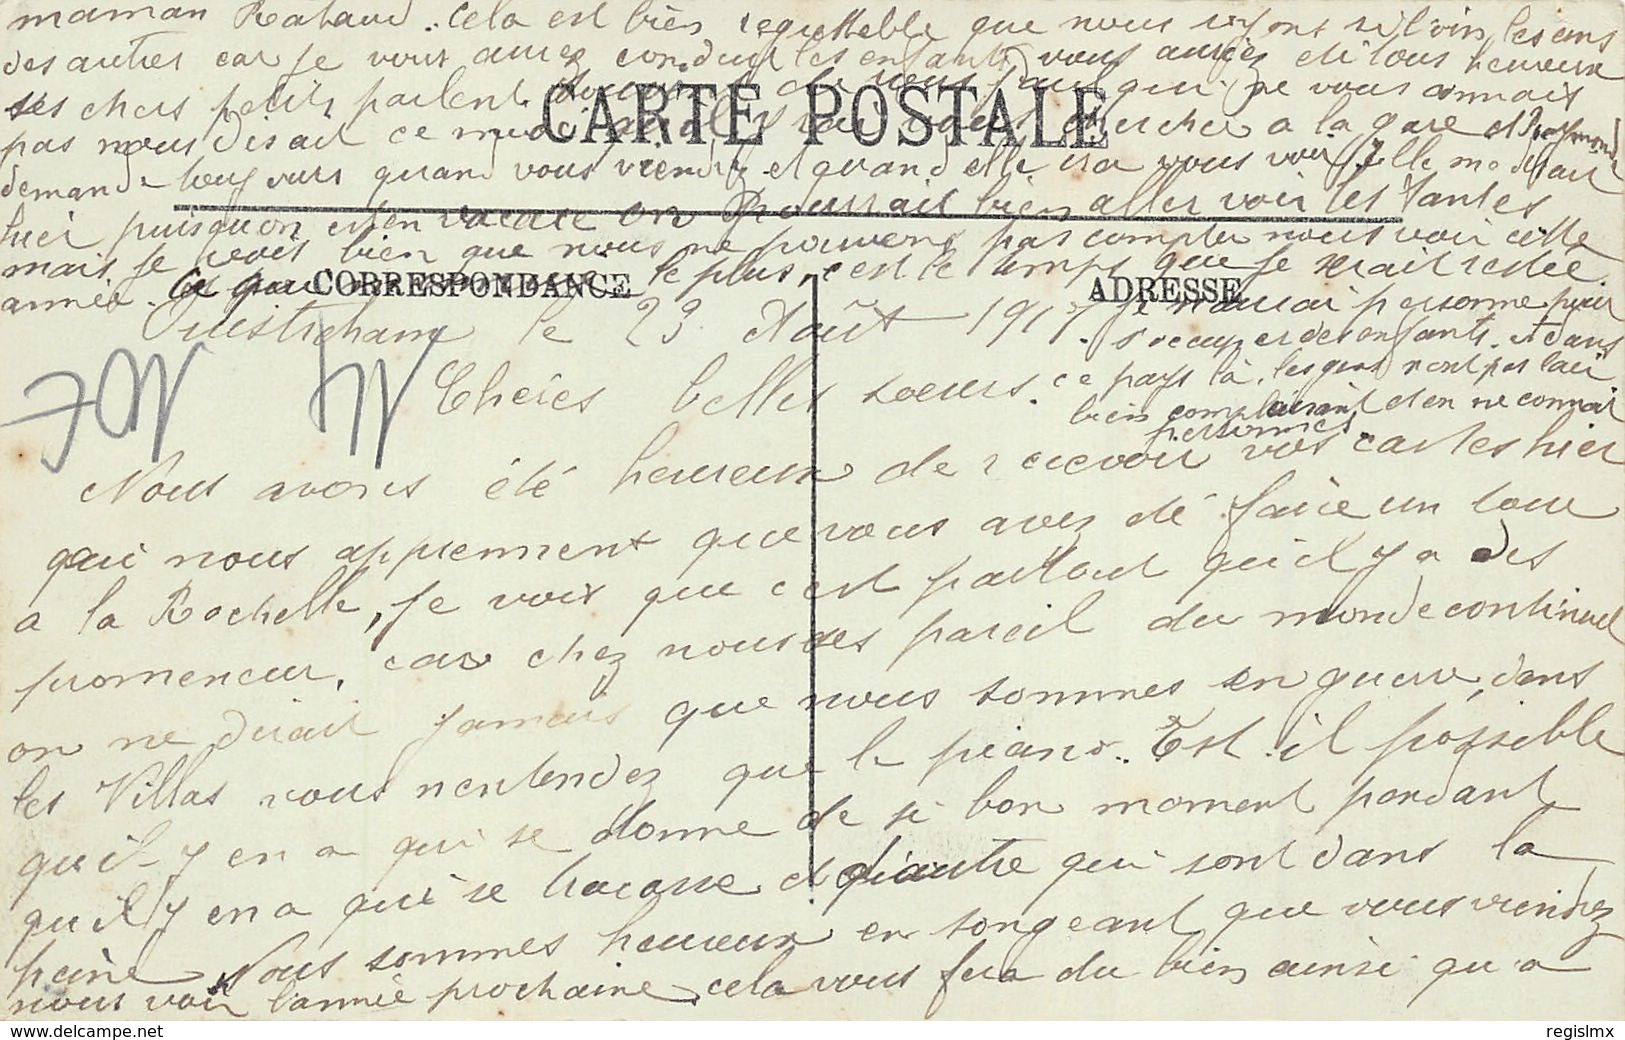 CARTE POSTALE
CORRESPONDANCE
ADRESSE
Ouistreham le 23 Août 1917
Chères belles soeurs.
Nous avons été heureux de recevoir vos cartes hier
qui nous apprennent que vous avez été faire un tour
a la Rochelle, je vois que c'est partout qu'il y a des
promeneur, car chez nous des pareil du monde continuel
on ne dirait jamais que nous sommes en guerre, dans
les Villas vous n'entendez que le piano. Est il possible
qu'il y en a qui se donne de si bon moment pendant
qu'il y en a qui se tracasse et d'autre qui sont dans la
peine Nous sommes heureux en songeant que vous viendrez
nous voir l'année prochaine, cela vous fera du bien ainsi qu'a
maman Rataud. Cela est bien regrettable que nous soyons si loin les uns
des autres car je vous aurez conduit les enfants vous auriez été tous heureux
ses chers petits parlent de vous qui ne vous connais
pas nous disait ce chercher a la gare et Raymonde
demande toujours quand vous viendrez et quand elle ira vous voir elle me disait
hier puisqu'on est en vacance on pourrait bien aller voir les tantes
mais je vois bien que nous ne pouvons pas compter nous voir cette
année. Ce qui le plus, c'est le temps que je serait restée
n'aurai personne pour
s'occuper des enfants. et dans
ce pays là, les gens n'ont pas l'air
bien complaisant et on ne connait
personnes.